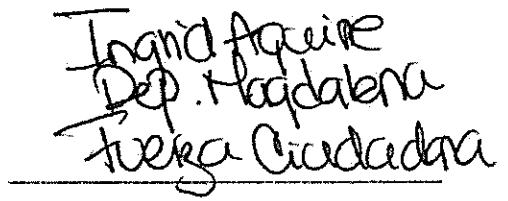 Ingrid Aguirre
Dep. Magdalena
Fuerza Ciudadana